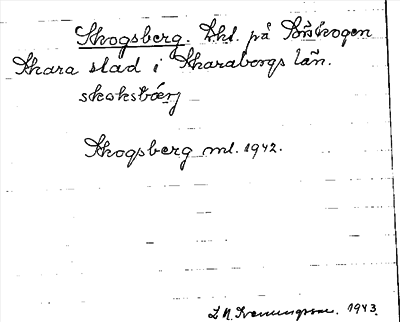 Skogsberg. Lht. på Önskogen
Skara stad i Skaraborgs län.
skoksbærj
Skogsberg ml. 1942.
1943.